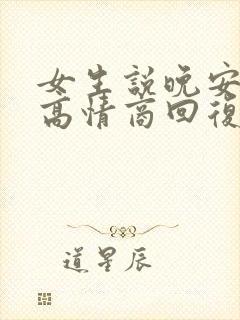 女生説晚安
高情商回復
道星辰